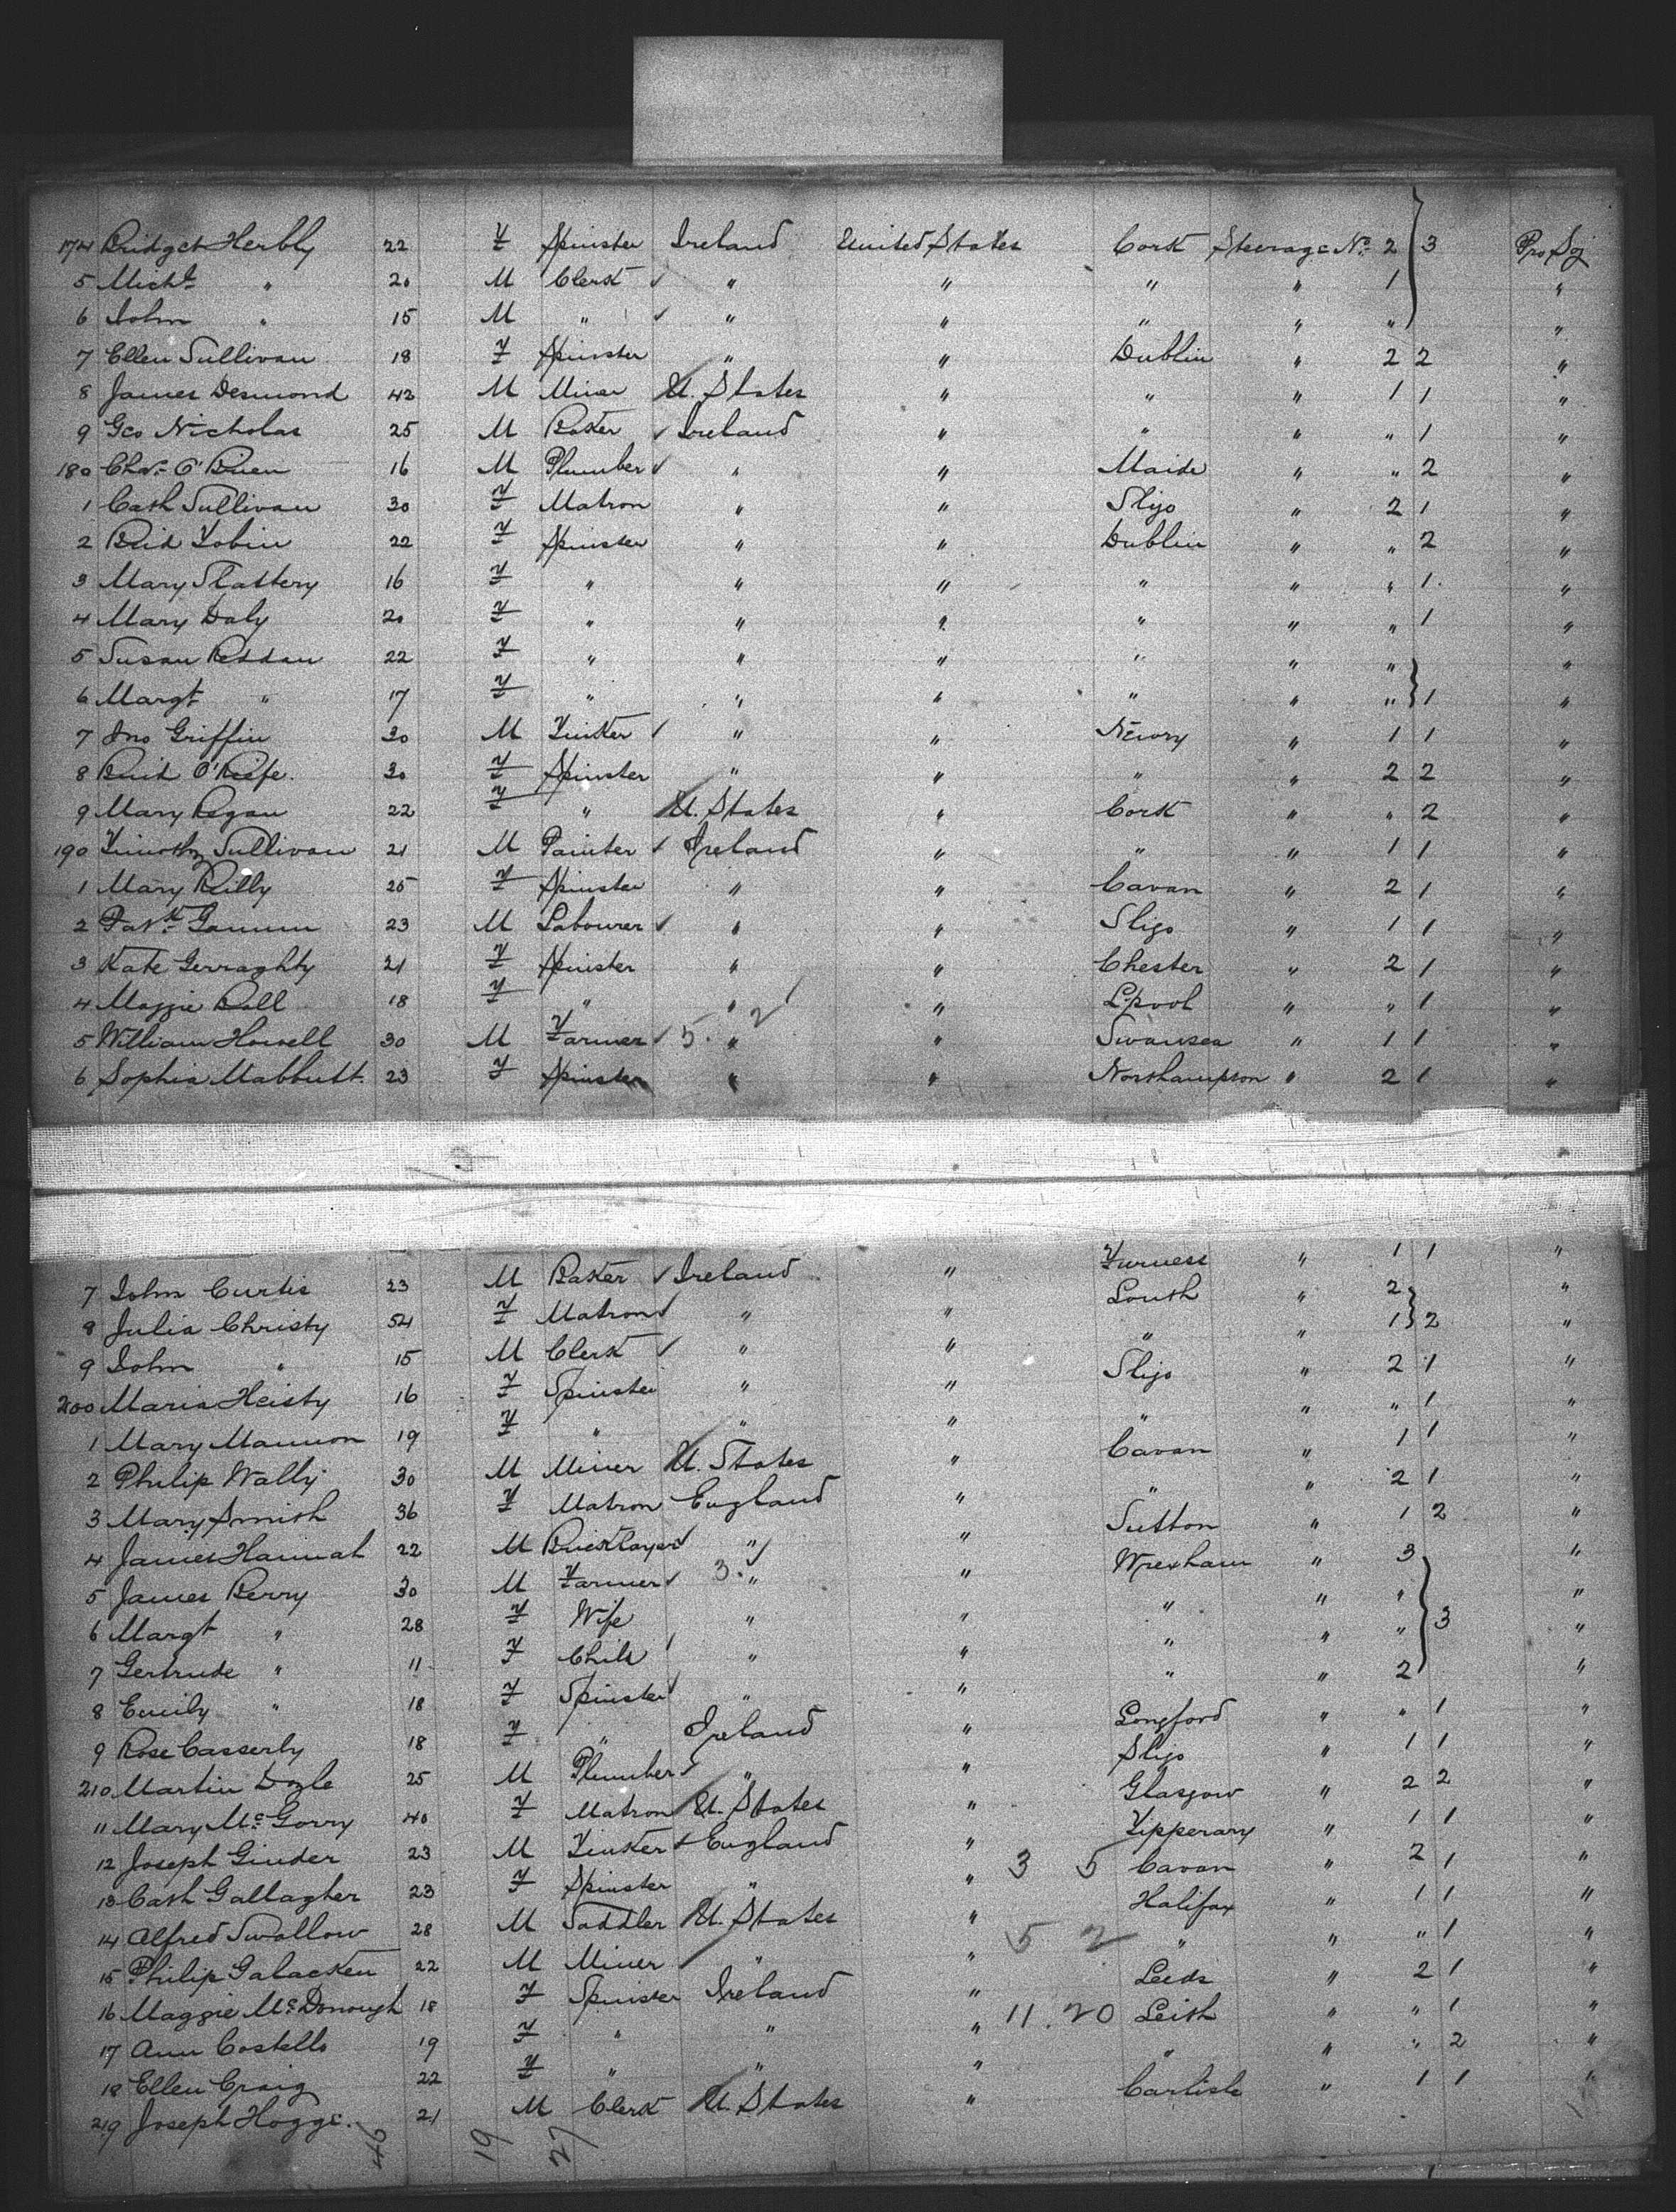 174 Bridget Herbly 22 F Spinster Ireland United States Cork Steerage No. 2 3 Pro Soj
5 Michl " 20 M Clerk " " " " 1 "
6 John " 15 M " " " " " " "
7 Ellen Sullivan 18 F Spinster " " Dublin " 2 2 "
8 James Desmond 42 M Miner U. States " " " 1 1 "
9 Geo Nicholas 25 M Baker Ireland " " " " 1 "
180 Chas. O'Brien 16 M Plumber " " " " 2 "
1 Cath Sullivan 30 F Matron " " Sligo " 2 1 "
2 Brid Tobin 22 F Spinster " " Dublin " " 2 "
3 Mary Slattery 16 F " " " " " " 1 "
4 Mary Daly 20 F " " " " " " 1 "
5 Susan Reddan 22 F " " " " " " "
6 Margt " 17 F " " " " " " 1 "
7 Jno Griffin 30 M Tinker " " Newry " 1 1 "
8 Brid O'Keefe 30 F Spinster " " " " 2 2 "
9 Mary Regan 22 F " U. States " Cork " " 2 "
190 Timothy Sullivan 21 M Painter Ireland " " " 1 1 "
1 Mary Reilly 25 F Spinster " " Cavan " 2 1 "
2 Patk 23 M Labourer " " Sligo " 1 1 "
3 Kate Gerraghty 21 F Spinster " " Chester " 2 1 "
4 Maggie 18 F " " " L'pool " " 1 "
5 William Howell 30 M Farmer 5. 2 " " Swansea " 1 1 "
6 Sophia Mabbutt 23 F Spinster " " Northampton " 2 1 "
7 John Curtis 23 M Baker Ireland " Furness " 1 1 "
8 Julia Christy 54 F Matron " " Louth " 2 "
9 John " 15 M Clerk " " " " 1 2 "
200 Maria Heisty 16 F Spinster " " Sligo " 2 1 "
1 Mary Mannon 19 F " " " " " " 1 "
2 Philip Wally 30 M Miner U. States " Cavan " 1 1 "
3 Mary Smith 36 F Matron England " " " 2 1 "
4 James Hannah 22 M Bricklayer " " Sutton " 1 2 "
5 James Berry 30 M Farmer 3. " " Wrexham " 3 "
6 Margt " 28 F Wife " " " " " 3 "
7 Gertrude " 11 F Child " " " " " "
8 Emily " 18 F Spinster " " " " 2 "
9 Rose Casserly 18 F " Ireland " Longford " " 1 "
210 Martin Doyle 25 M Plumber " " Sligo " 1 1 "
11 Mary McGorry 40 F Matron U. States " Glasgow " 2 2 "
12 Joseph Ginder 23 M Tinker England " Tipperary " 1 1 "
13 Cath Gallagher 23 F Spinster " " 3 5 Cavan " 2 1 "
14 Alfred Swallow 28 M Saddler U. States " Halifax " 1 1 "
15 Philip Galacken 22 M Miner " " 5 2 " " " 1 "
16 Maggie McDonough 18 F Spinster Ireland " Leeds " 2 1 "
17 Ann Costello 19 F " " " 11. 20 Leith " " 1 "
18 Ellen Craig 22 F " " " " " " 2 "
219 Joseph Hogge. 21 M Clerk U. States " Carlisle " 1 1 "
19 27